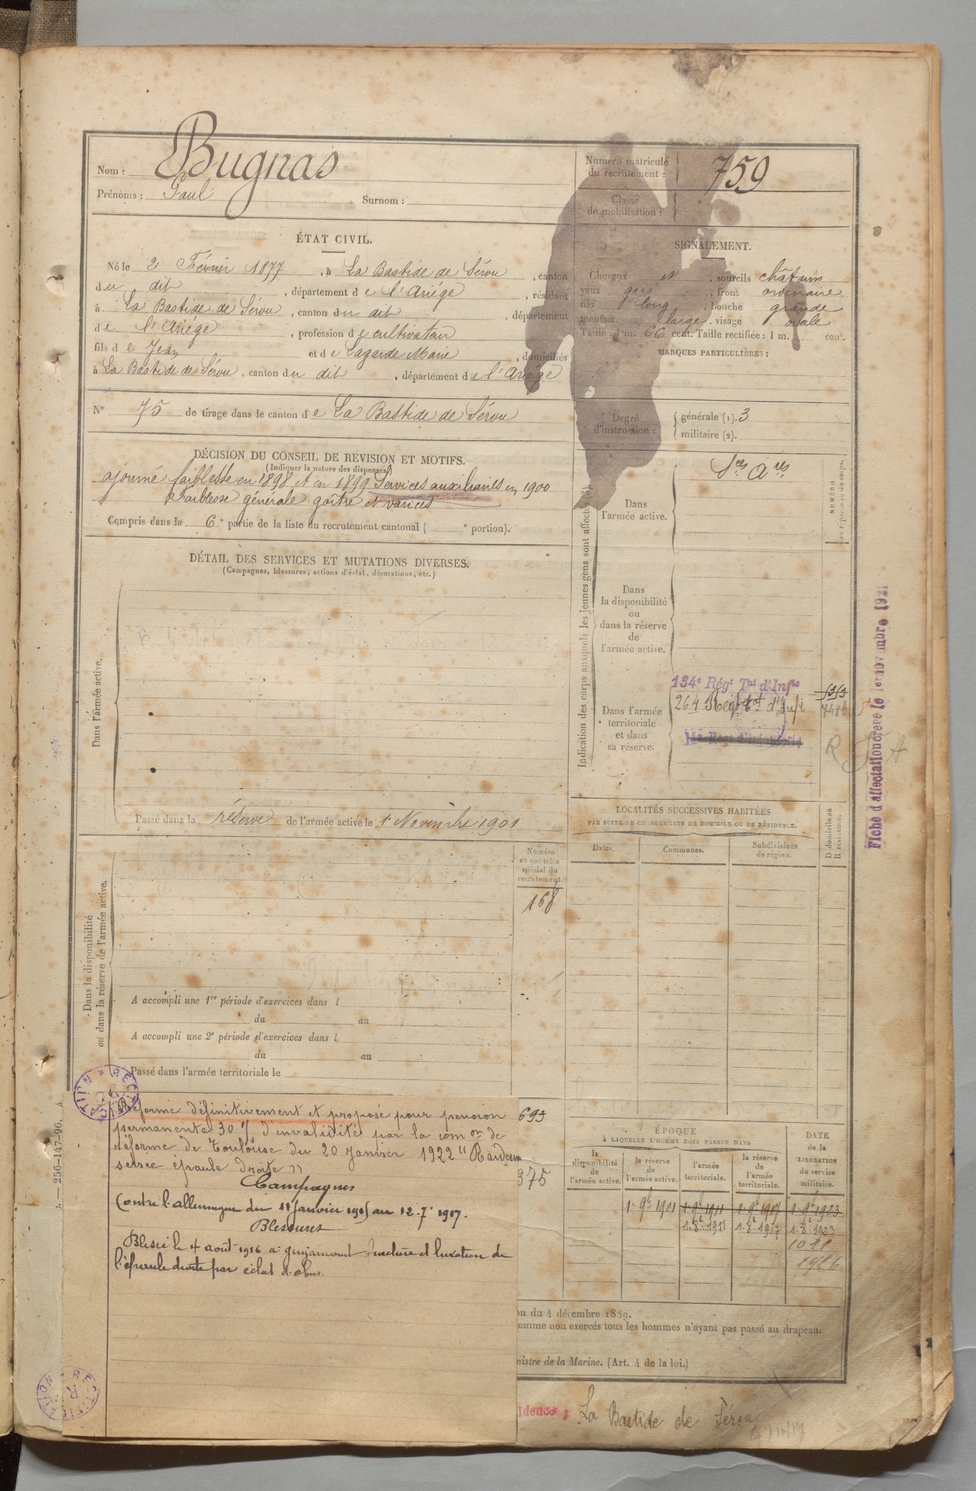 Nom : Bugnas
Prénoms : Paul Surnom :
Numéro matricule du recrutement : 759
Classe de mobilisation :
ÉTAT CIVIL.
Né le 2 Février 1877, à La Bastide de Sérou, canton
du dit, département de l'Ariége, résidant
à La Bastide de Sérou, canton du dit, département
de l'Ariége, profession de cultivateur
fils de Jean et de Lagarde Marie, domiciliés
à La Bastide de Sérou, canton du dit, département de l'Ariége
N° 75 de tirage dans le canton de La Bastide de Sérou
SIGNALEMENT.
Cheveux, sourcils châtains
yeux gris, front ordinaire
nez long, bouche grande
menton large, visage ovale
Taille : 1 m. 66 cent. Taille rectifiée : 1 m. cent.
MARQUES PARTICULIÈRES :
Degré d'instruction : générale (1). 3
militaire (2).
DÉCISION DU CONSEIL DE REVISION ET MOTIFS.
(Indiquer la nature des dispenses)
ajourné faiblesse en 1898 et en 1899 Services auxiliaires en 1900
Faiblesse générale goître et varices
Compris dans la 6e partie de la liste du recrutement cantonal ( e portion).
DÉTAIL DES SERVICES ET MUTATIONS DIVERSES.
(Campagnes, blessures, actions d'éclat, décorations, etc.)
Dans l'armée active.
Passé dans la réserve de l'armée active le 1 Novembre 1901
Indication des corps auxquels les jeunes gens sont affectés
Dans l'armée active.
Dans la disponibilité ou dans la réserve de l'armée active.
Dans l'armée territoriale et dans sa réserve.
134e Régt Tal d'Infie
Fiche d'affectation créée le 1er novembre 1921
LOCALITÉS SUCCESSIVES HABITÉES
PAR SUITE DE CHANGEMENTS DE DOMICILE OU DE RÉSIDENCE.
Dates. Communes. Subdivisions de région. D domicile ou R résidence.
Numéro au contrôle spécial du recrutement.
168
Dans la disponibilité
ou dans la réserve de l'armée active.
A accompli une 1re période d'exercices dans l
du au
A accompli une 2e période d'exercices dans l
du au
Passé dans l'armée territoriale le
Réformé définitivement et proposé pour pension
permanente 30 % d'invalidité par la comon de
réforme de Toulouse du 20 Janvier 1922 "Raideur
serrée épaule droite"
Campagnes
Contre l'allemagne du 11 janvier 1915 au 12-7-1917.
Blessures
Blessé le 4 août 1916 à
fracture et luxation de
l'épaule droite par éclat d'obus.
693
375
ÉPOQUE
À LAQUELLE L'HOMME DOIT PASSER DANS
la disponibilité de l'armée active. la réserve de l'armée active. l'armée territoriale. la réserve de l'armée territoriale.
DATE de la LIBÉRATION du service militaire.
1-9bre 1901 1-9-1911 1-9-1917 1-9-1923
on du 4 décembre 1889.
omme non exercés tous les hommes n'ayant pas passé au drapeau.
nistre de la Marine. (Art. 4 de la loi.)
idence : La Bastide de Sérou